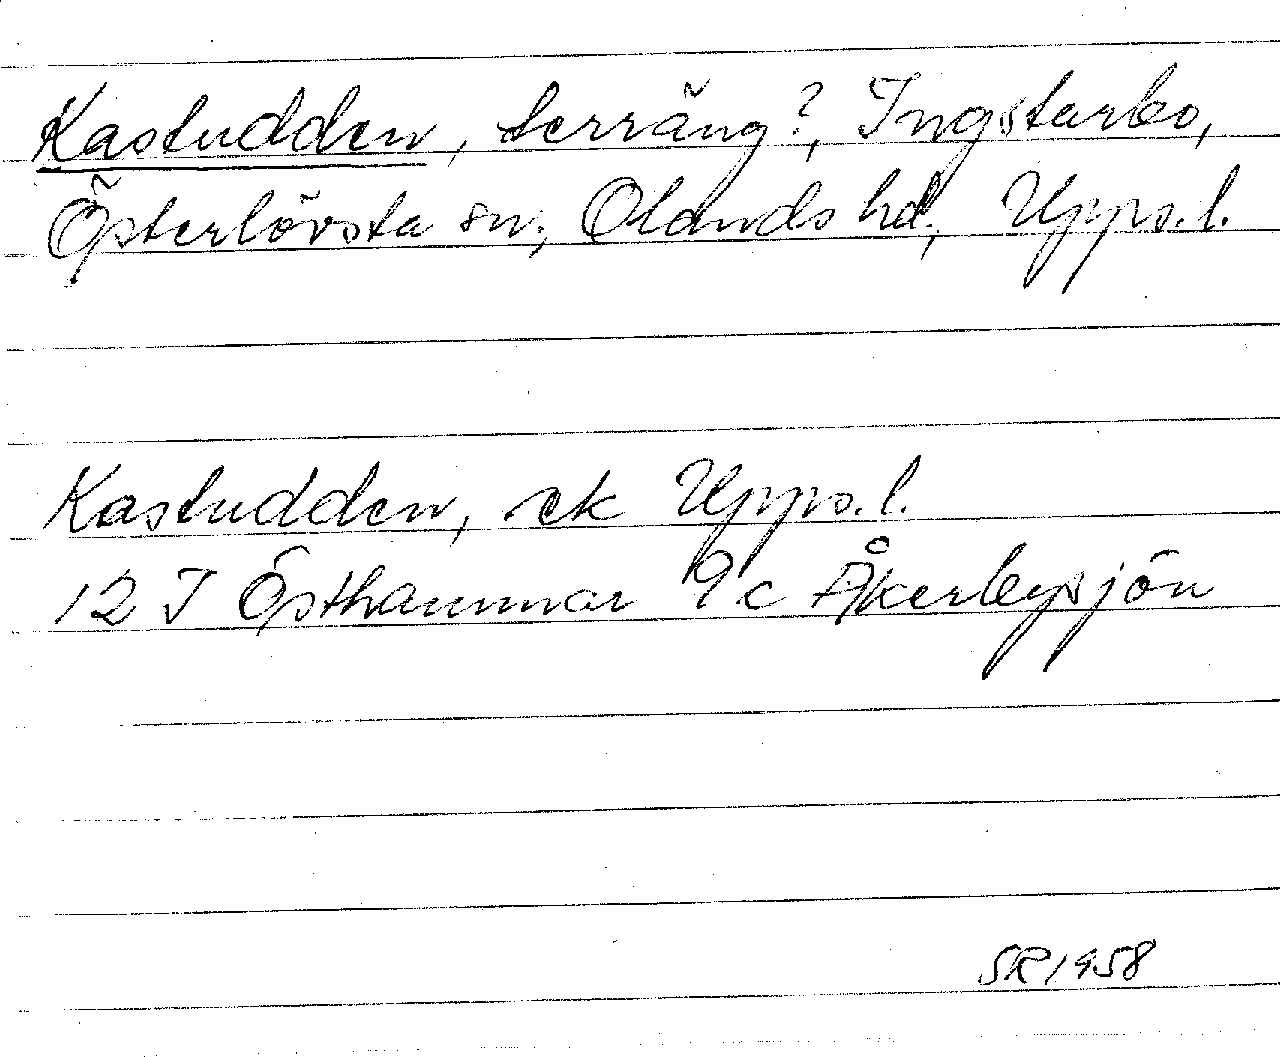 Kastudden, terräng?, Ingstarbo,
Österlövsta sn., Olands hd., Upps.l.
Kastudden, ek Upps.l.
12 I Östhammar 9 c Åkerbysjön
SR 1958